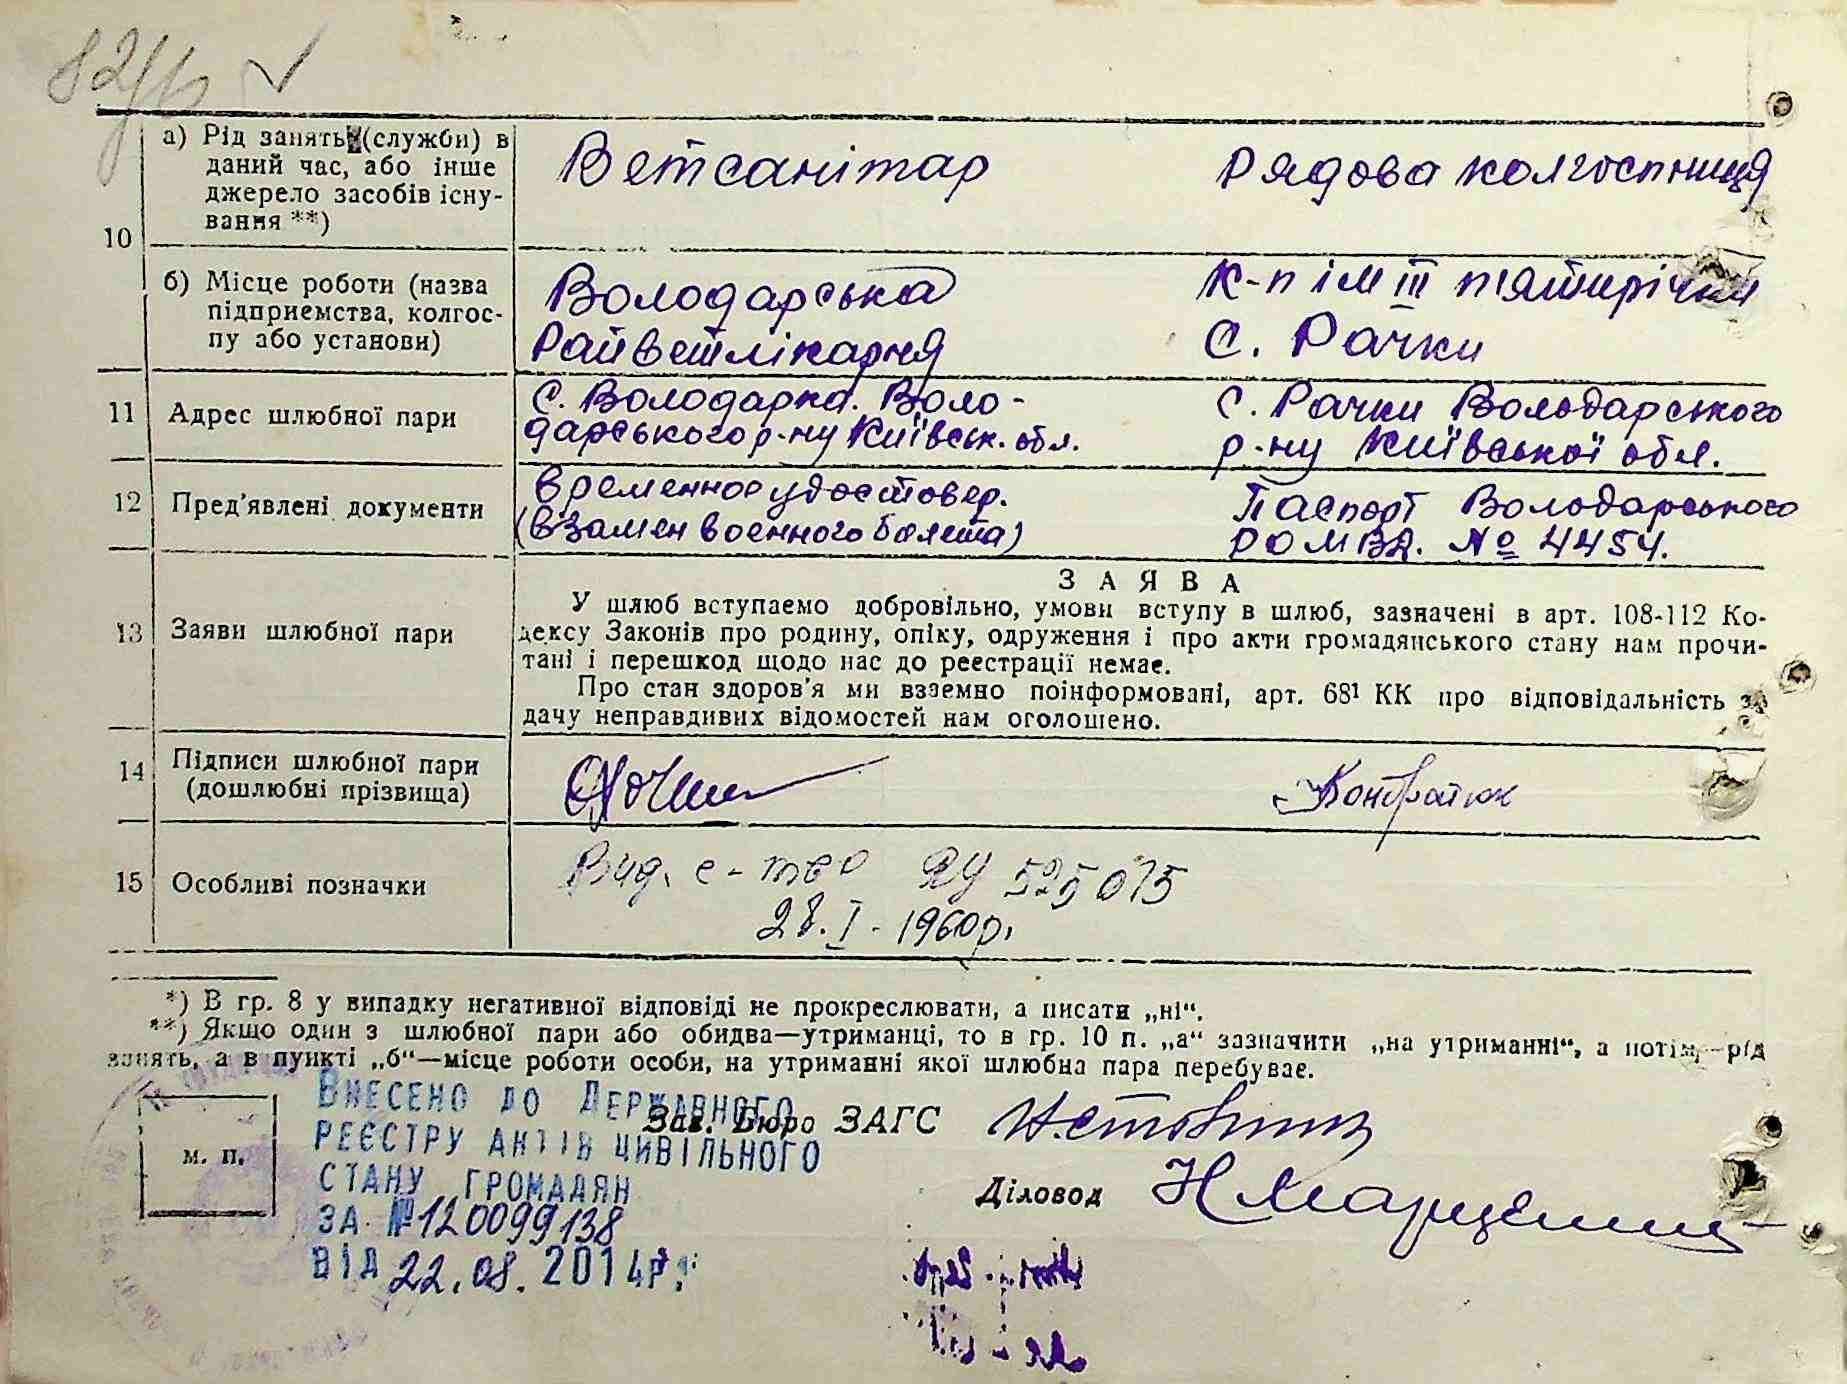 а) Рід занять (служби) в
даний час, або інше
джерело засобів існу-
вання **)
Ветсанітар
Рядова колгоспниця
10
б) Місце роботи (назва
підприємства, колгос-
пу або установи)
Володарська
Райветлікарня
К-п ім III п'ятирічки
с. Рачки
11
Адрес шлюбної пари
с. Володарка. Воло-
дарського р-ну Київськ. обл.
с. Рачки Володарського
р-ну Київської обл.
12
Пред'явлені документи
Временное удостовер.
(взамен военного билета)
Паспорт Володарського
РОМВД. № 4454.
13
Заяви шлюбної пари
ЗАЯВА
У шлюб вступаємо добровільно, умови вступу в шлюб, зазначені в арт. 108-112 Ко-
дексу Законів про родину, опіку, одруження і про акти громадянського стану нам прочи-
тані і перешкод щодо нас до реєстрації немає.
Про стан здоров'я ми взаємно поінформовані, арт. 68¹ КК про відповідальність за
дачу неправдивих відомостей нам оголошено.
14
Підписи шлюбної пари
(дошлюбні прізвища)
Кондратюк
15
Особливі позначки
Вид. с-тво 525075
28. I - 1960р.
*) В гр. 8 у випадку негативної відповіді не прокреслювати, а писати „ні“.
**) Якщо один з шлюбної пари або обидва—утриманці, то в гр. 10 п. „а“ зазначити „на утриманні“, а потім—рід
занять, а в пункті „б“—місце роботи особи, на утриманні якої шлюбна пара перебуває.
м. п.
Зав. Бюро ЗАГС
Діловод
ВНЕСЕНО ДО ДЕРЖАВНОГО
РЕЄСТРУ АКТІВ ЦИВІЛЬНОГО
СТАНУ ГРОМАДЯН
ЗА №120099138
ВІД 22.08.2014р.